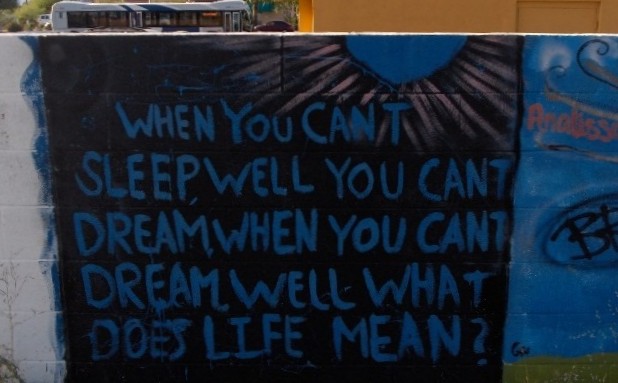 WHEN YOU CAN'T
SLEEP, WELL YOU CANT
DREAM, WHEN YOU CANT
DREAM, WELL WHAT
DOES LIFE MEAN?